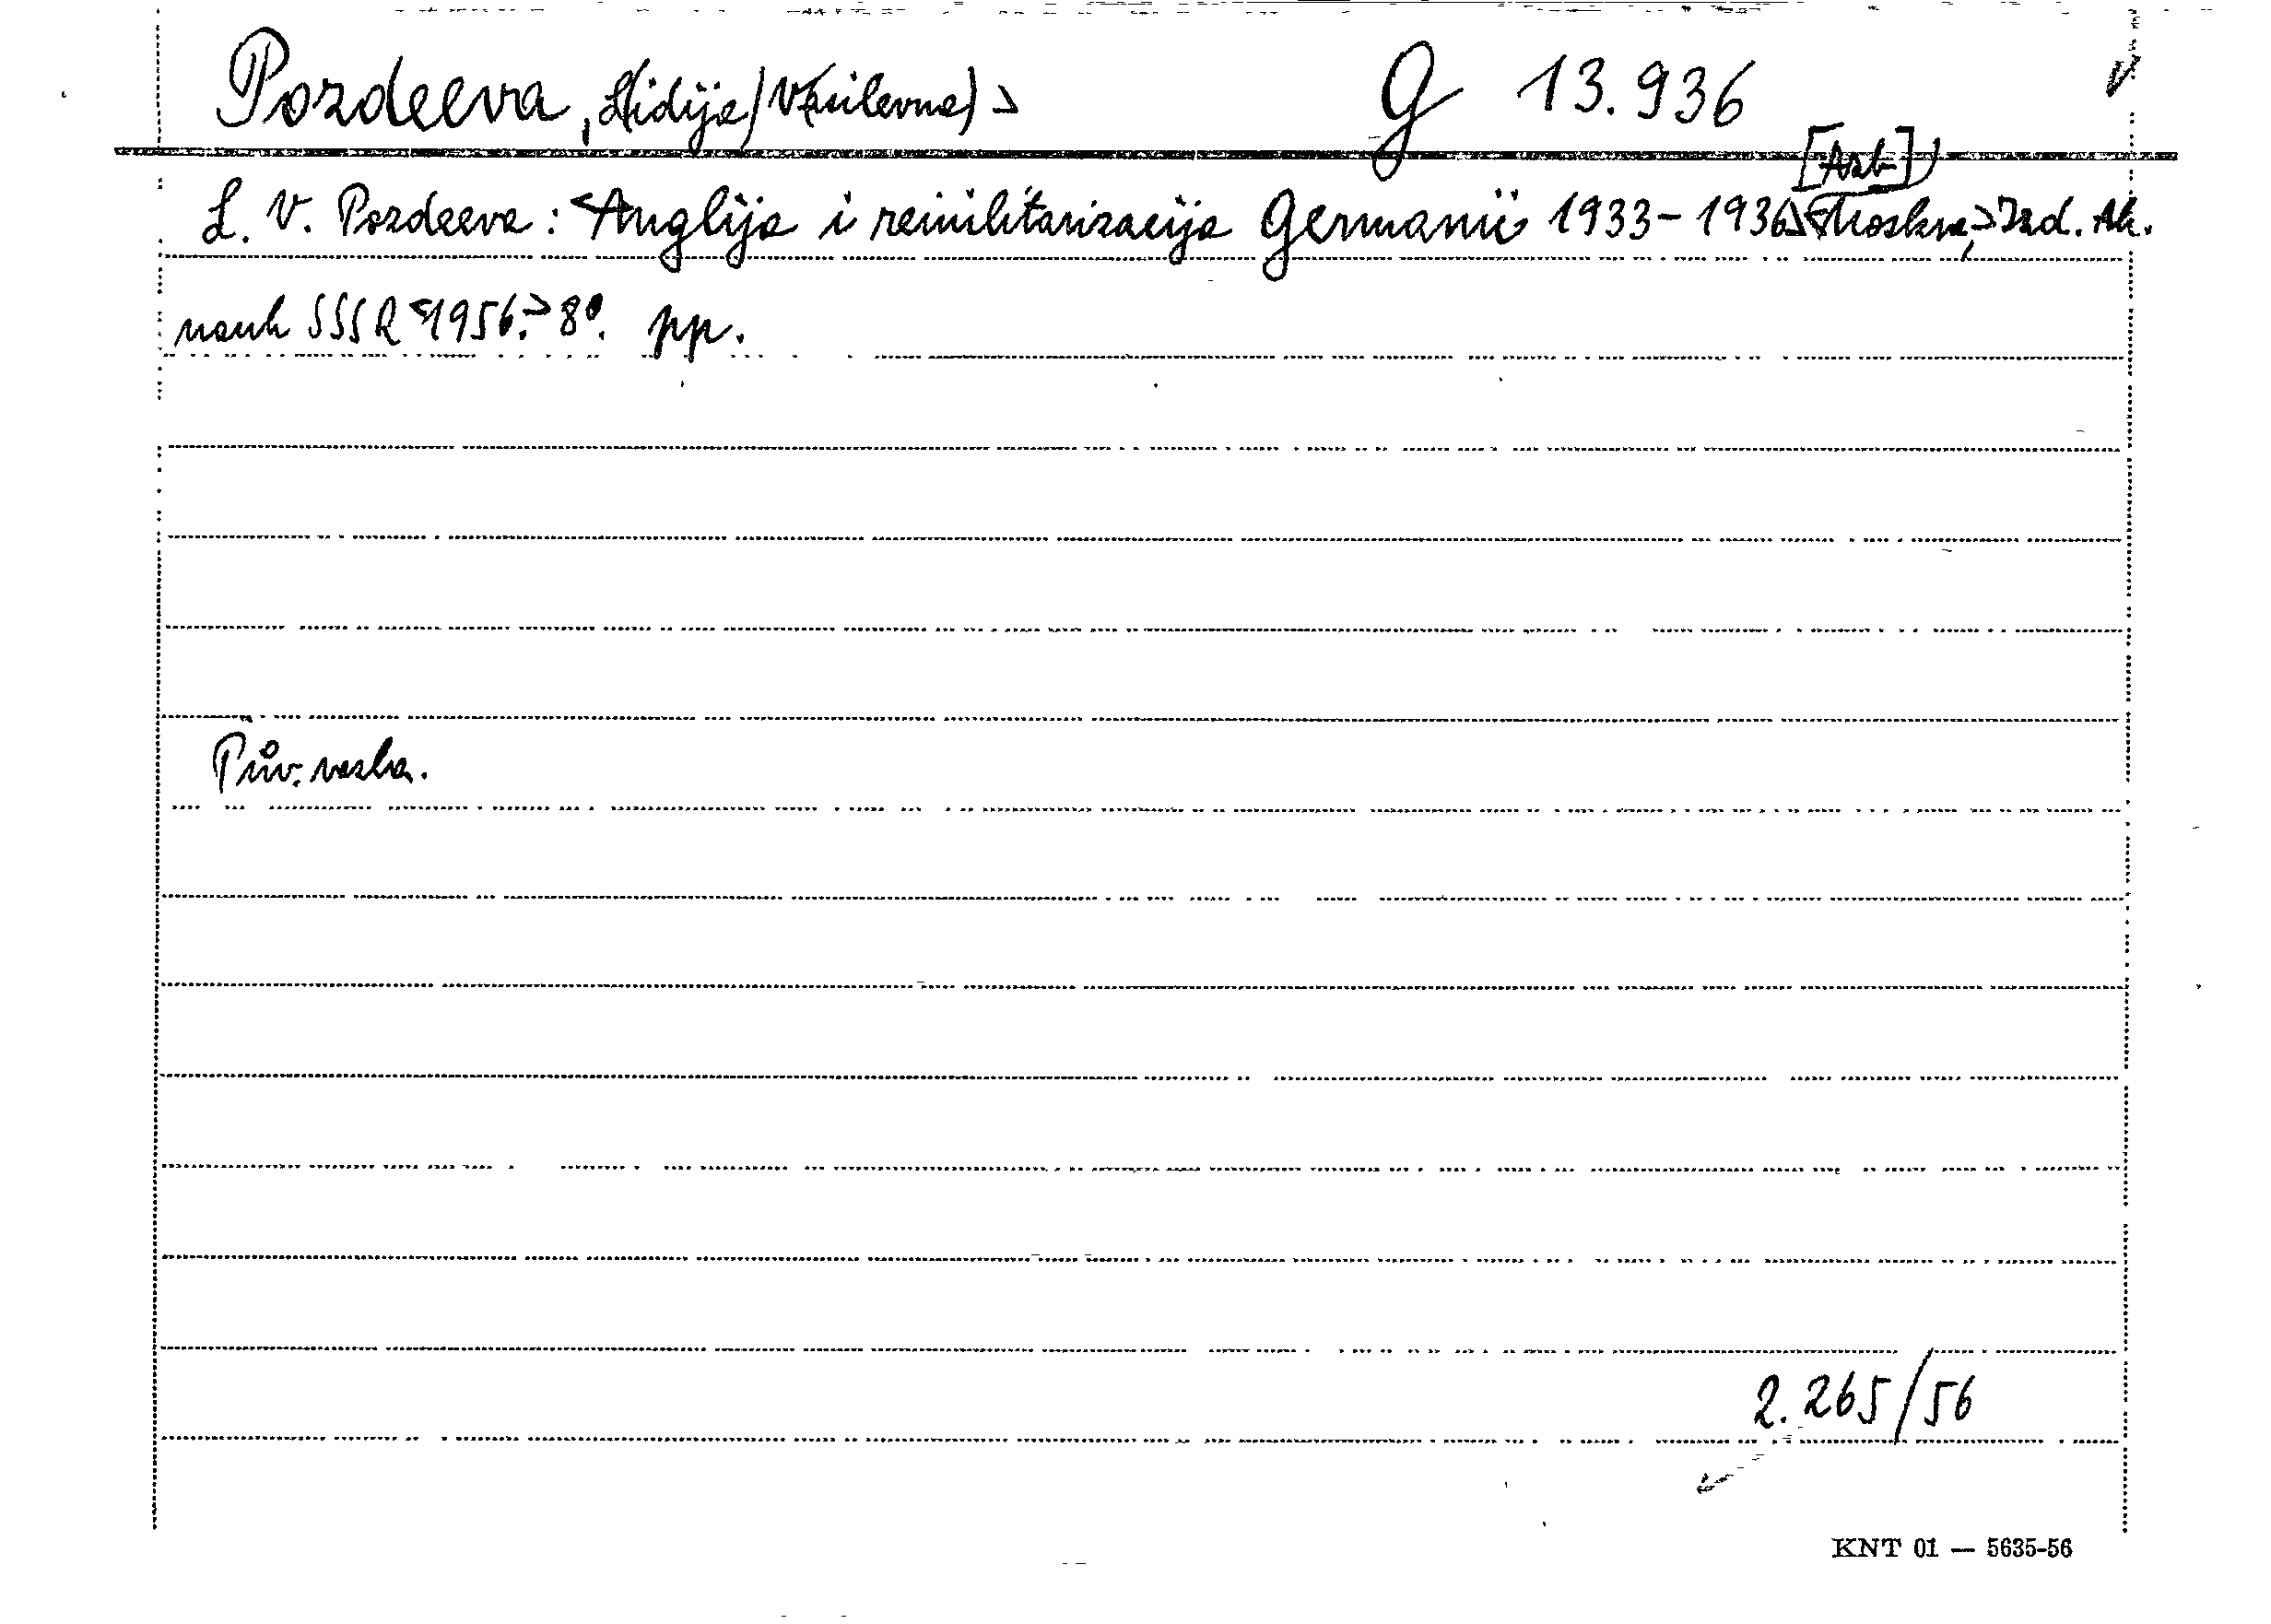 Pozdeeva, Lidija (Vasilevna) > G 13.936
L. V. Pozdeeva: <Anglija i remilitarizacija Germanii 1933-1936> <Moskva,> Izd. Ak.
nauk SSSR <1956.> 8°. pp.
Pův. vazba.
2.265/56
KNT 01 — 5635-56